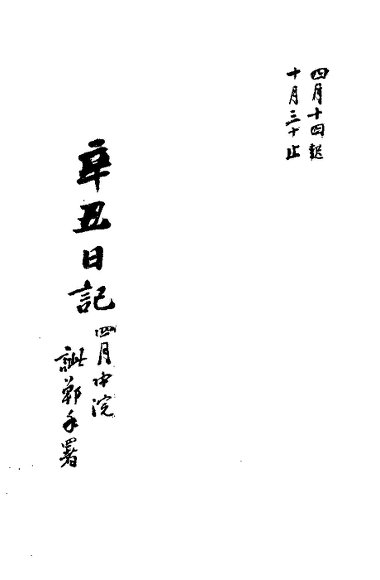 四月十四起
十月三十止
辛丑日記
四月中浣
訿鄭手署